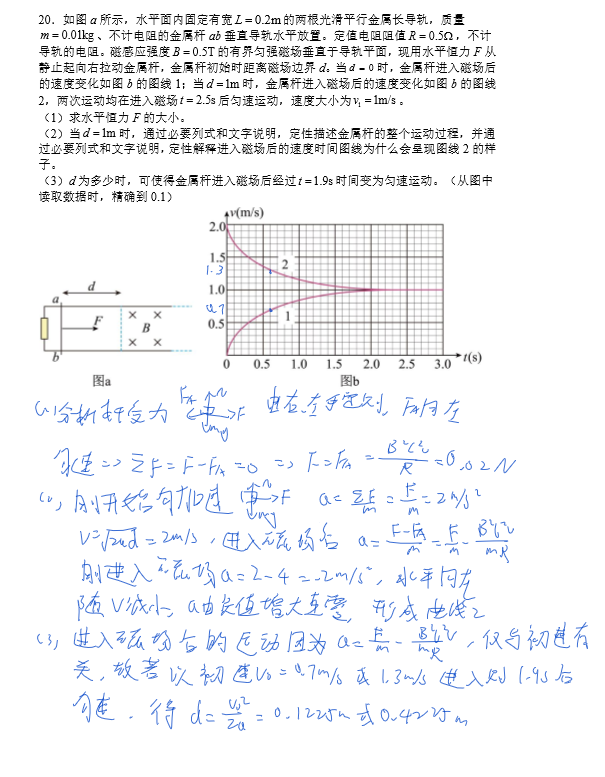 20. 如图 a 所示，水平面内固定有宽 L = 0.2m 的两根光滑平行金属长导轨，质量
m = 0.01kg、不计电阻的金属杆 ab 垂直导轨水平放置。定值电阻阻值 R = 0.5Ω，不计
导轨的电阻。磁感应强度 B = 0.5T 的有界匀强磁场垂直于导轨平面，现用水平恒力 F 从
静止起向右拉动金属杆，金属杆初始时距离磁场边界 d。当 d = 0 时，金属杆进入磁场后
的速度变化如图 b 的图线 1；当 d = 1m 时，金属杆进入磁场后的速度变化如图 b 的图线
2，两次运动均在进入磁场 t = 2.5s 后匀速运动，速度大小为 v₁ = 1m/s 。
（1）求水平恒力 F 的大小。
（2）当 d = 1m 时，通过必要列式和文字说明，定性描述金属杆的整个运动过程，并通
过必要列式和文字说明，定性解释进入磁场后的速度时间图线为什么会呈现图线 2 的样
子。
（3）d 为多少时，可使得金属杆进入磁场后经过 t = 1.9s 时间变为匀速运动。（从图中
读取数据时，精确到 0.1）
v(m/s)
2.0
1.5
1.3
1.0
0.7
0.5
0 0.5 1.0 1.5 2.0 2.5 3.0 t(s)
2
1
图b
d
a
F
B
b
× ×
× ×
图a
(1) 分析杆受力 F_A N F mg 由右、左手定则，F_A向左
匀速 => ΣF = F - F_A = 0 => F = F_A = B²L²v/R = 0.02N
(2) 刚开始匀加速 N F mg a = ΣF/m = F/m = 2m/s²
V = √2ad = 2m/s，进入磁场后 a = (F-F_A)/m = F/m - B²L²v/mR
刚进入磁场 a = 2 - 4 = -2m/s²，水平向左
随V减小，a由负值增大至零，形成曲线2
(3) 进入磁场后的运动因为 a = F/m - B²L²v/mR，仅与初速有
关，故若以初速 V₀ = 0.7m/s 或 1.3m/s 进入则 1.9s 后
匀速，得 d = v₀²/2a = 0.1225m 或 0.4225m